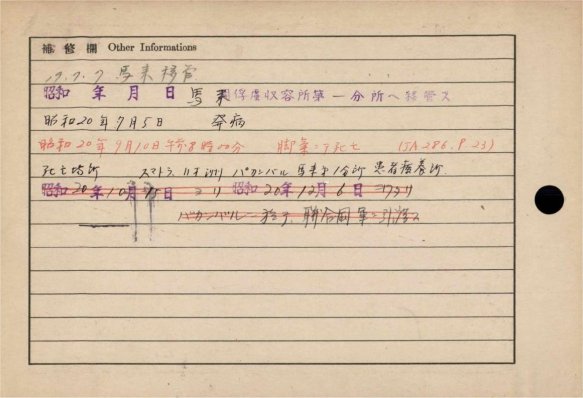 補修欄 Other Informations
19.7.7 馬来移管
昭和 年 月 日 馬来俘虜収容所第一分所へ移管ス
昭和20年7月5日 発病
昭和20年9月10日午前8時00分 脚氣ニテ死亡 (JA286.P.23)
死亡場所 スマトラ リオ洲 パカンバル 馬来第1分所 患者療養所
昭和20年10月15日ヨリ 昭和20年12月6日ニワタリ
パカンバルニ於テ、聯合国軍ニ引渡ス